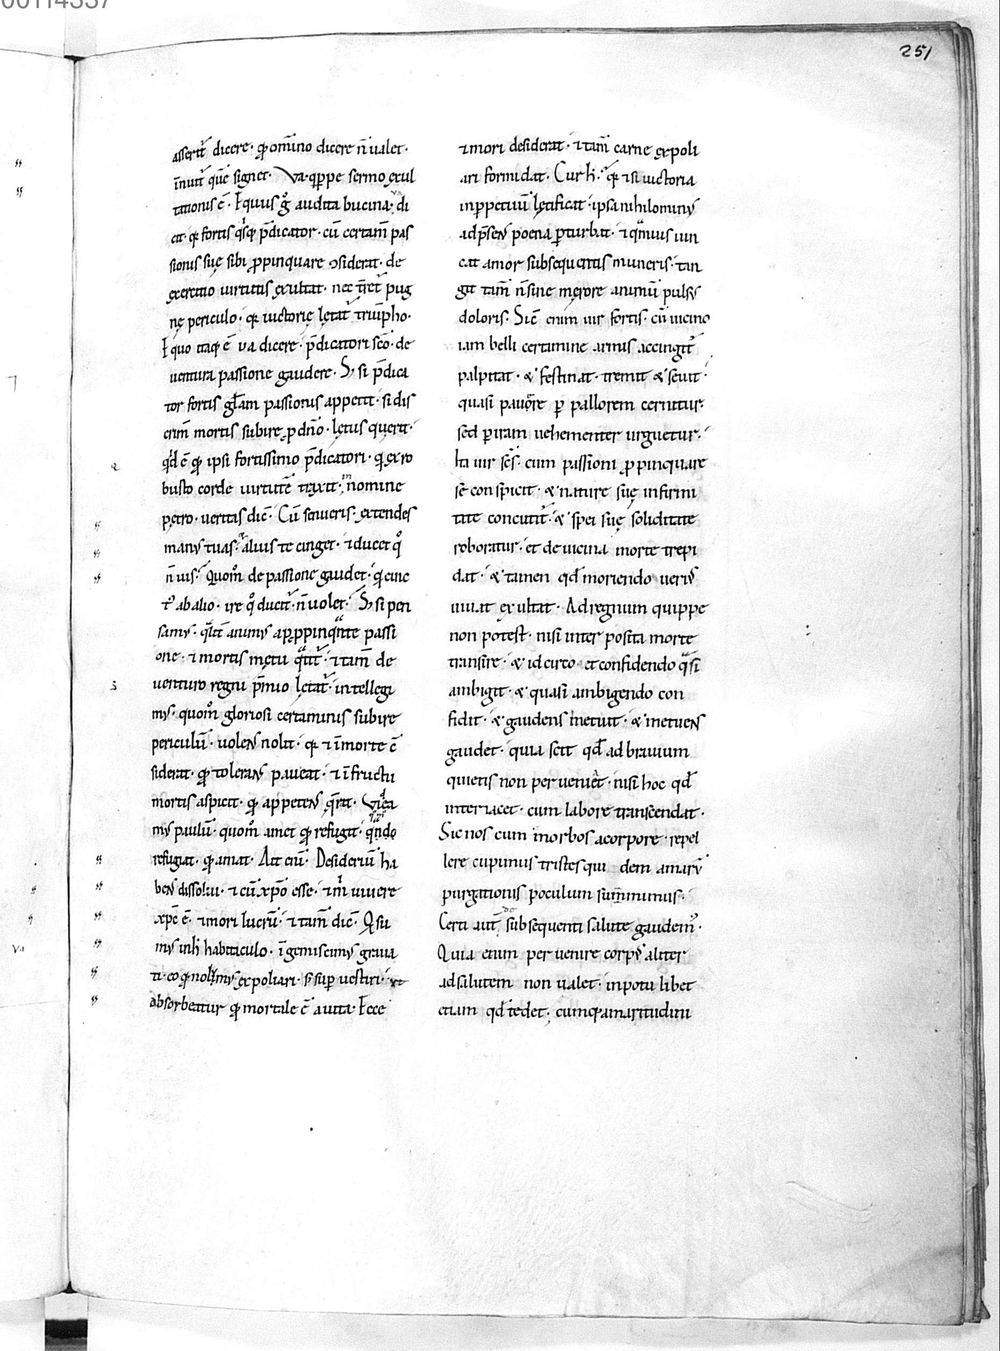 251
asserit dicere· q̅ om̅ino dicere n̅ ualet·
in̅uit que̅ signet· Va· q̅ppe sermo exul
tationis e̅· Equus g̊ audita bucina· di
cit· q̅ fortis q̅sq; p̅dicator· cu̅ certam̅ pas
sionis suę sibi p̅pinquare ↄsiderat· de
exercitio uirtutis exultat· nec t̅ret̅ pug
nę periculo· q̅ uictorię lętat̅ triu̅pho·
Equo itaq; e̅ va dicere· p̅dicatori sc̅o· de
uentura passione gaudere· S; si p̅dica
tor fortis gl̅am passionis appetit· si dis
crim̅ mortis subire p dn̅o· lętus querit·
q̅d e̅ q̅ ipsi fortissimo p̅dicatori· q̅ ex ro
busto corde uirtute̅ traxit· in nomine
petro· ueritas dic̅· Cu̅ senueris· extendes
manꝰ tuas· alius te cinget· ⁊ ducet q̊
n̅ uis· Quom̅ de passione gaudet· q̅ cinc
t̅ˀ ab alio· ire q̊ ducit̅· n̅ uolet· S; si pen
samꝰ· q̅lit̅ animꝰ appropinq̅nte passi
one· ⁊ mortis metu q̅tit̅· ⁊ tam̅ de
uenturo regni p̅mio lętat̅· intellegi
mꝰ· quom̅ gloriosi certaminis subire
periculu̅· uolens nolit· q̅ ⁊ in̅ morte c̅
siderat· q̅ tolerans paueat· ⁊ i̅ fructu
mortis aspicit· q̅ appetens q̅rat· Videa
mꝰ paulu̅· quom̅ amet q̅ refugit· q̅ndo
refugiat· q̅ amat· Ait eni̅· Desideriu̅ ha
bens dissolui· ⁊ cu̅ xp̅o esse· ⁊ m̅ uiuere
xp̅c e̅· ⁊ mori lucru̅· ⁊ tam̅ dic̅· Q su
mꝰ in h̅ habitaculo· i̅gemiscimꝰ graua
ti· eo q̅ nolumꝰ expoliari· s; sup uestiri· ut
absorbeatur q̅ mortale e̅ a uita· Ecce
⁊ mori desiderat· ⁊ tam̅ carne expoli
ari formidat· Cur h̅· q̅ ⁊ si uictoria
inp̅petiuu̅ lętificat· ipsa nihilominꝰ
ad p̅sens poena p̅turbat· ⁊ q̅muis uin
cat amor subsequentis muneris· tan
git tam̅ n̅ sine merore animu̅ pulsꝰ
doloris· Sic̅ enim uir fortis· cu̅ uicino
iam belli certamine armis accingit̅
palpitat· & festinat· tremit & seuit·
quasi pauore p̅ pallorem cernitur·
sed p̅ iram uehementer urguetur·
Ita uir sc̅s· cum passioni p̅pinquare
se conspicit· & nature suę infirmi
tate concutit̅· & spei suę soliditate
roboratur· et de uicina morte trepi
dat· & tamen qd̅ moriendo uerius
uiuat exultat· Ad regnum quippe
non potest· nisi inter posita morte
transire· & idcirco et confidendo q̅si
ambigit· & quasi ambigendo con
fidit· & gaudens metuit· & metuens
gaudet· quia scit qd̅ ad brauium
quietis non perueniet· nisi hoc qd̅
interiacet· cum labore transcendat·
Sic nos cum morbos a corpore repel
lere cupimus tristes qui dem amarum
purgationis poculum sumimus·
Certi aut̅ de subsequenti salute gaudem̅ꝰ·
Quia enim peruenire corpꝰ aliter
ad salutem non ualet· in potu libet
etiam qd̅ tedet· cumq; amaritudini